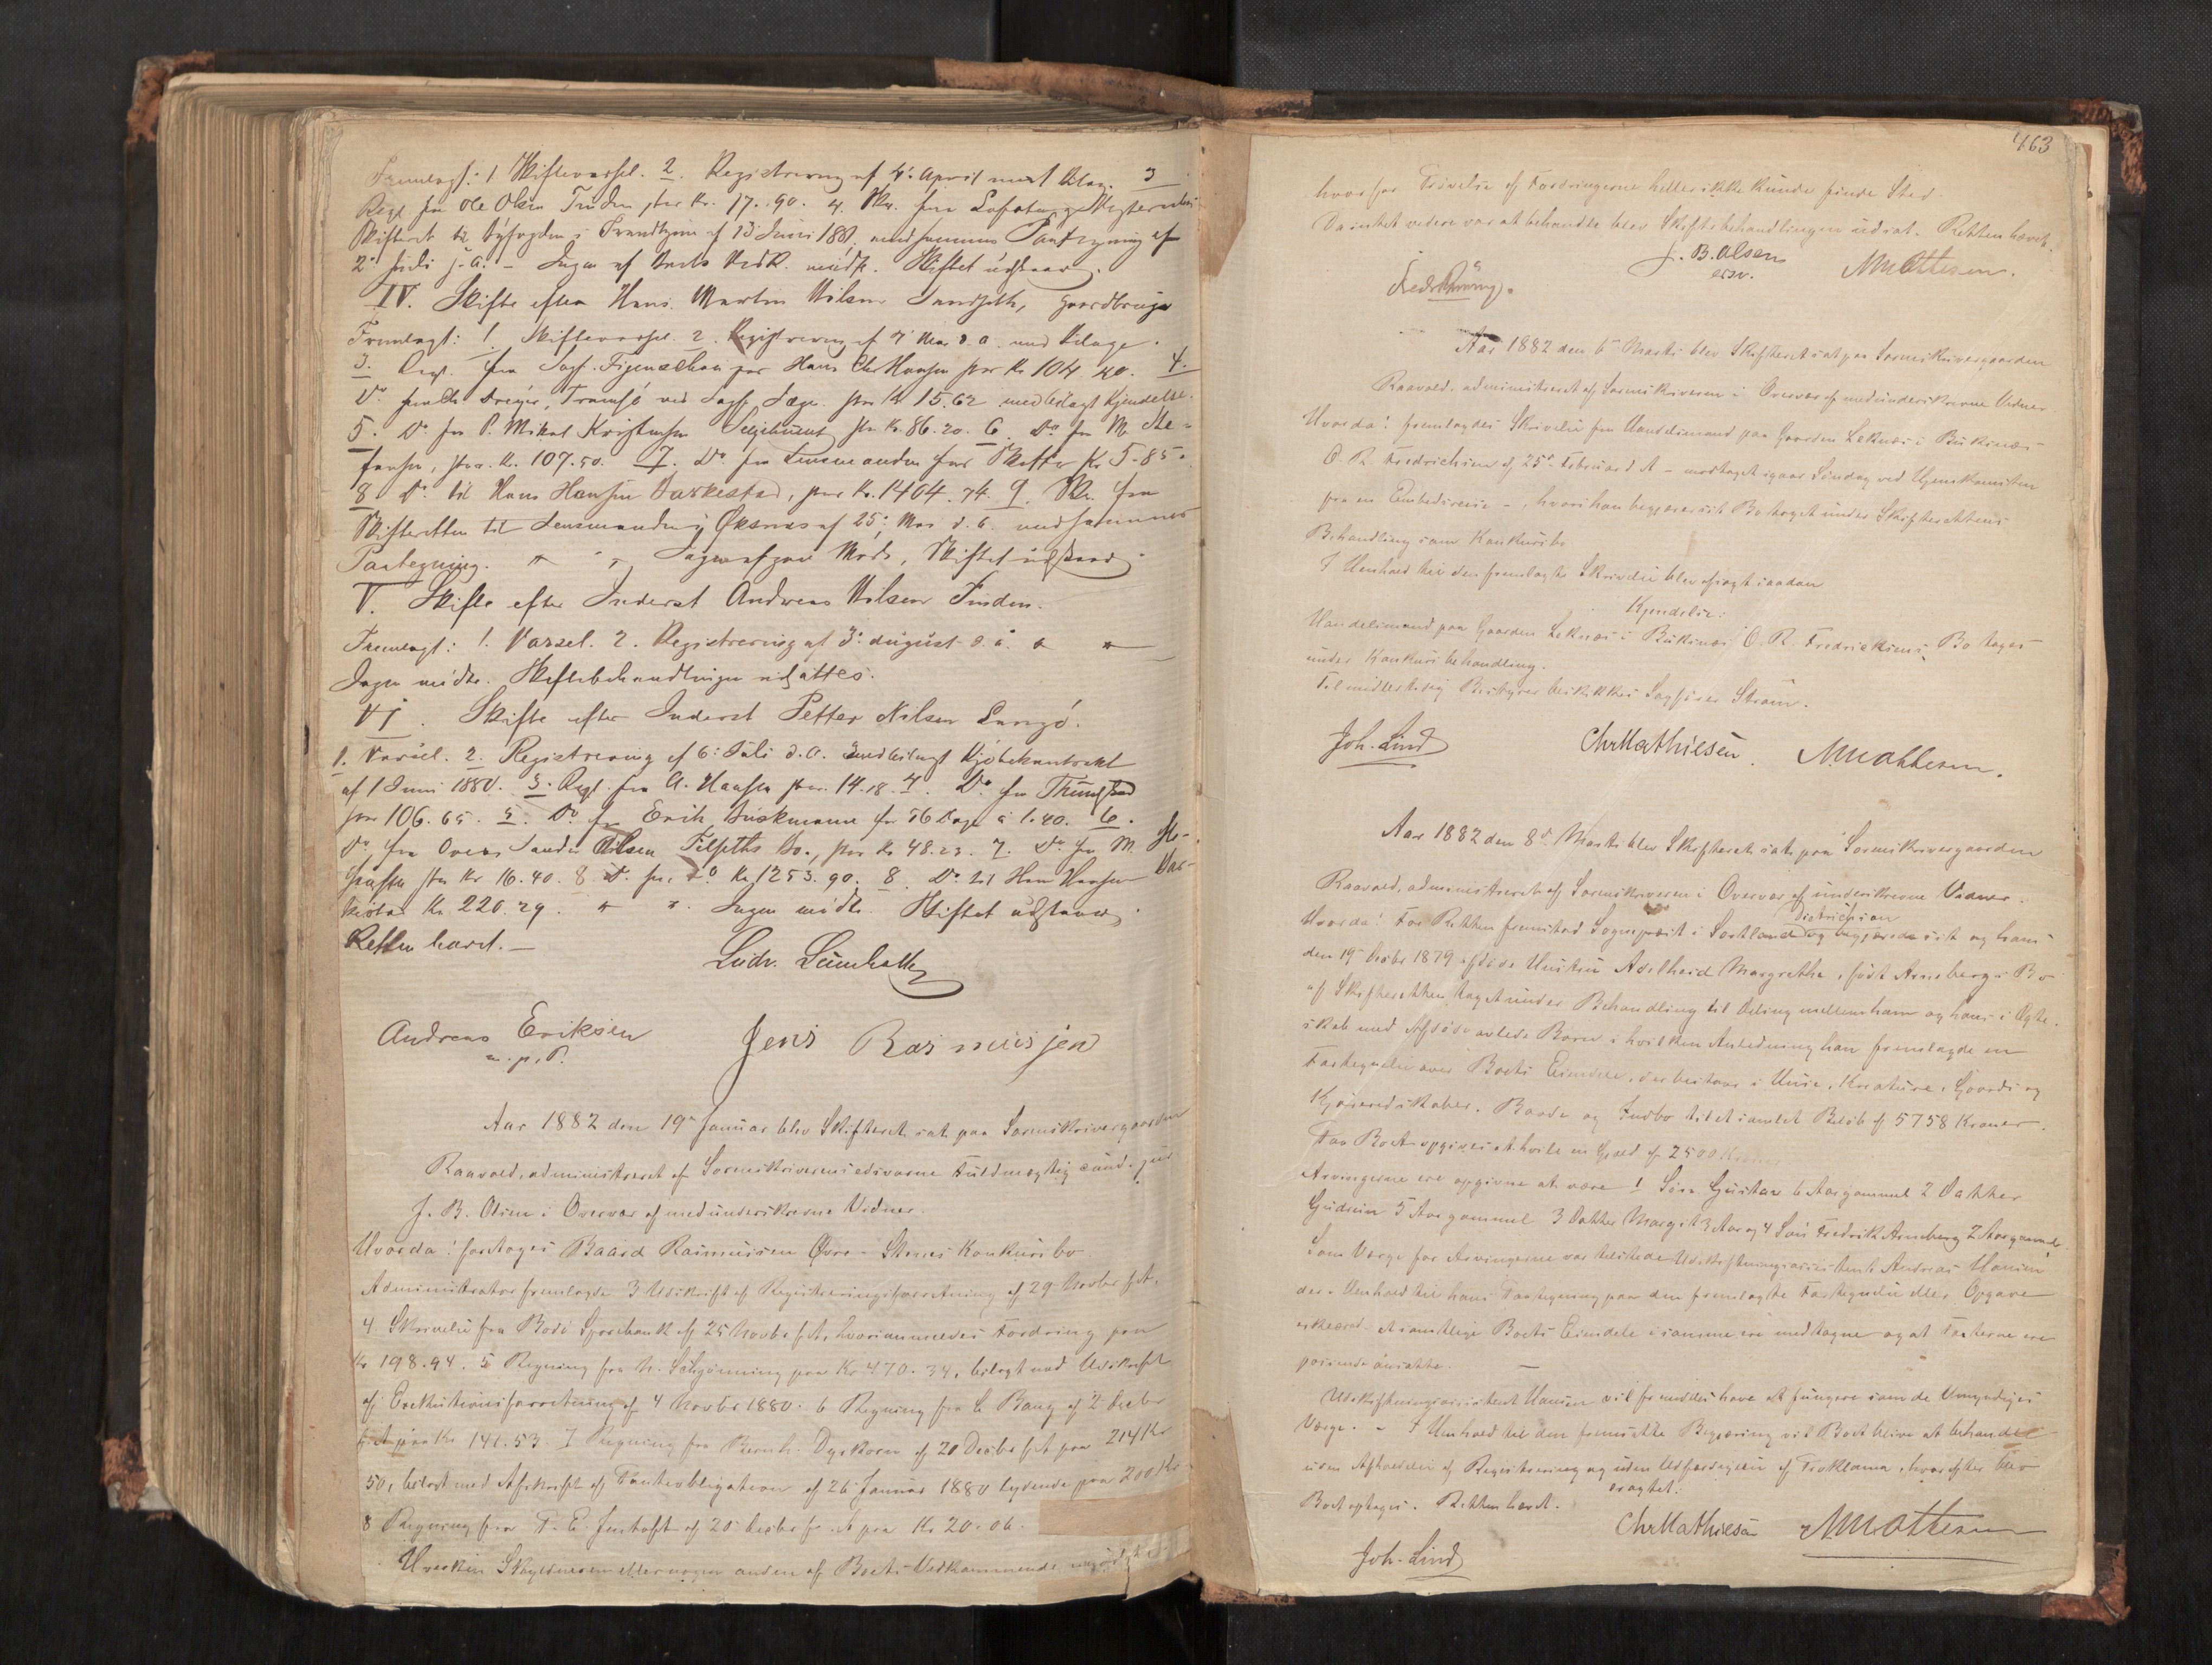 Fremlagt: 1 Skiftevarsel. 2. Registrering af 4. April med Bilag. 3
Regn fra Ole Olsen Finden stor Kr. 17.90. 4. Skr. fra
Skifteret til Byfogden i Trondhjem af 13 Juni 1881, med sammes Paategning af
2. Juli j. a. - Ingen af Boets Vedk. mødte. Skiftet udstaar.
IV. Skifte efter Hans Martin Nilsen Sandseth, Gaardbruger
Fremlagt: 1. Skiftevarsel. 2. Registrering af 7 Mai d. a. med Bilage.
3. Regn. fra Sagf. Figenschau for Hans Chr Hansen stor Kr 104.40. 4.
Do fra Dreyer, Tromsø ved Sagf. stor Kr 15.62 med bilagt Kjendelse.
5. Do fra P. Mikal Kristensen stor Kr. 86.20. 6. Do fra M. Ste-
fensen, stor Kr. 107.50. 7. Do fra Lensmanden for Skatter Kr 5.85.
8 Do til Hans Hansen Barkestad, stor Kr. 1404.74. 9. Skr. fra
Skifteretten til Lensmanden i Øksnæs af 25. Mai d. a. med sammes
Paategning. Ingen mødte, Skiftet udstaar.
V. Skifte efter Inderst Andreas Nilsen Finden.
Fremlagt: 1. Varsel. 2. Registrering af 3. august d. a.
Ingen mødte. Skiftebehandlingen udsattes.
VI. Skifte efter Inderst Petter Nilsen Langø.
1. Varsel. 2. Registrering af 6. Juli d. a. med bilagt Kjøbekontrakt
af 1 Juni 1880. 3. Regn. fra A. Hansen stor 14.18. 4. Do fra
stor 106.65. 5. Do fra Erik Buskmann for 56 Dage à 1.40. 6.
Do fra Ovens Sander Olsen Tilseths Bo, stor Kr 48.23. 7. Do fra M. Ste-
fensen stor Kr 16.40. 8 Do fra Do Kr. 1253.90. 8. Do til Hans Hansen Bar-
kestad Kr. 220.29. Ingen mødte. Skiftet udstaar.
Retten hævet. -
Ludv. Lumholtz
Andreas Eriksen
m. p. P.
Jens Rasmussen
Aar 1882 den 19de Januar blev Skifteret sat paa Sorenskrivergaarden
Raavold, administreret af Sorenskriverens edsvorne Fuldmægtig cand. jur
J. B. Olsen i Overvær af medunderskrevne Vidner.
Hvorda! foretoges Baard Rasmussen Øvre-Stenes Konkursbo.
Administrator fremlagde 3 Udskrift af Registreringsforretning af 29 Novbr f. A.
4 Skrivelse fra Bodø Sparebank af 25 Novbr f. A, hvori anmeldes Fordring paa
Kr 198.94. 5 Regning fra N. Schjønning paa Kr 470.34, bilagt med Udskrift
af Exekutionsforretning af 4 Novbr 1880. 6 Regning fra C Bang af 2 Decbr
f. A paa Kr 141.53. 7 Regning fra Bernh. Dyrkorn af 20 Decbr f. A paa 214 Kr
50, bilagt med Afskrift af Panteobligation af 26 Januar 1880 lydende paa 200 Kr
8 Regning fra T. E. Justoft af 20 Decbr f. A paa Kr 20.06.
Hverken Skyldneren eller nogen anden af Boets Vedkommende mødte,
463
hvorfor Prøvelse af Fordringerne heller ikke kunde finde Sted.
Da intet videre var at behandle blev Skiftebehandlingen udsat. Retten hævet.
J. B. Olsen
edsv.
M Mathisen.
Aar 1882 den 6 Marts blev Skifteret sat paa Sorenskrivergaarden
Raavold, administreret af Sorenskriveren i Overvær af medunderskrevne Vidner.
Hvorda! fremlagdes Skrivelse fra Handelsmand paa Gaarden Leknæs i Buksnæs
O. R. Fredriksen af 25de Februar d. A - modtaget igaar Søndag ved Hjemkomsten
fra en Embedsreise -, hvori han begjærer sit Bo taget under Skifterettens
Behandling som Konkursbo
I Henhold til den fremlagte Skrivelse blev afsagt saadan
Kjendelse:
Handelsmand paa Gaarden Leknæs i Buksnæs O. R. Fredriksens Bo tages
under Konkursbehandling.
Til midlertidig Bestyrer beskikkes Sagfører Strøm.
Joh. Lind
Chr Mathiesen.
M Mathisen.
Aar 1882 den 8de Marts blev Skifteret sat paa Sorenskrivergaarden
Raavold, administreret af Sorenskriveren i Overvær af underskrevne Vidner.
Dietrichson
Hvorda! For Retten fremstod Sognepræst i Sortland og begjærede sit og hans
den 19de Decbr 1879 afdøde Hustru Adelheid Margrethe, født Arnebergs Bo
af Skifteretten taget under Behandling til Deling mellem ham og hans i Ægte-
skab med Afdøde avlede Børn, i hvilken Anledning han fremlagde en
Fortegnelse over Boets Eiendele, der bestaar i Huse, Kreature, Gaards og
Kjøreredskaber, Baade og Indbo til et samlet Beløb af 5758 Kroner.
Paa Boet opgives at hvile en Gjæld af 2500 Kroner
Arvingerne ere opgivne at være 1 Søn Gustav 6 Aar gammel 2 Datter
Gudrun 5 Aar gammel 3 Datter Margit 3 Aar og 4 Søn Fredrik Arneberg 2 Aar gammel.
Som Værge for Arvingerne var tilstede Udskiftningsassistent Andreas Hansen
der i Henhold til hans Paategning paa den fremlagte Fortegnelse eller Opgave
erklæred at samtlige Boets Eiendele i samme ere medtagne og at Taxterne ere
passende ansatte. -
Udskiftningsassistent Hansen vil fremdeles have at fungere som de Umyndiges
Værge. - I Henhold til den fremsatte Begjæring vil Boet blive at behandle
uden Afholdelse af Registrering og uden Udfærdigelse af Proklama, hvorefter blev
eragtet:
Boet optages. Retten hævet.
Joh. Lind
Chr Mathiesen
M Mathisen